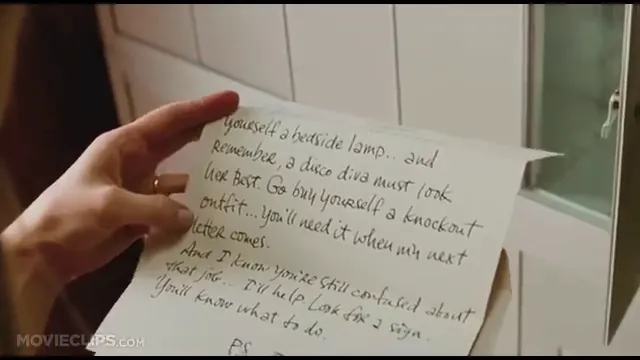 yourself a bedside lamp... and
remember, a disco diva must look
her best. Go buy yourself a knockout
outfit... you'll need it when my next
letter comes.
And I know you're still confused about
that job... I'll help. Look for a sign.
You'll know what to do.
PS
MOVIECLIPS.COM